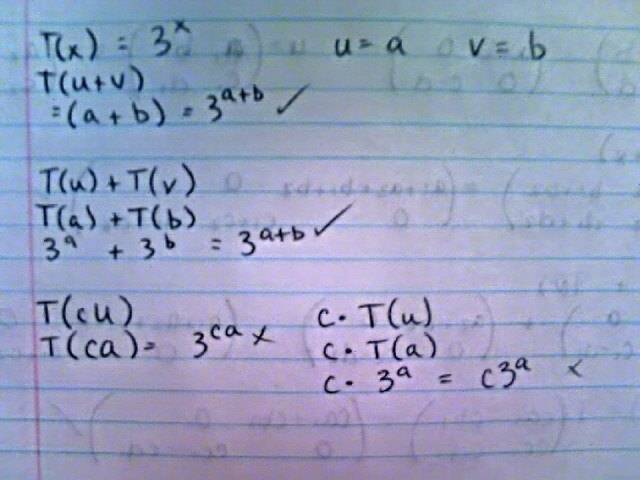 T(x) = 3^x u = a v = b
T(u+v)
= (a + b) = 3^{a+b} ✓
T(u) + T(v)
T(a) + T(b)
3^a + 3^b = 3^{a+b} ✓
T(cu) c · T(u)
T(ca) = 3^{ca} × c · T(a)
c · 3^a = c3^a ×